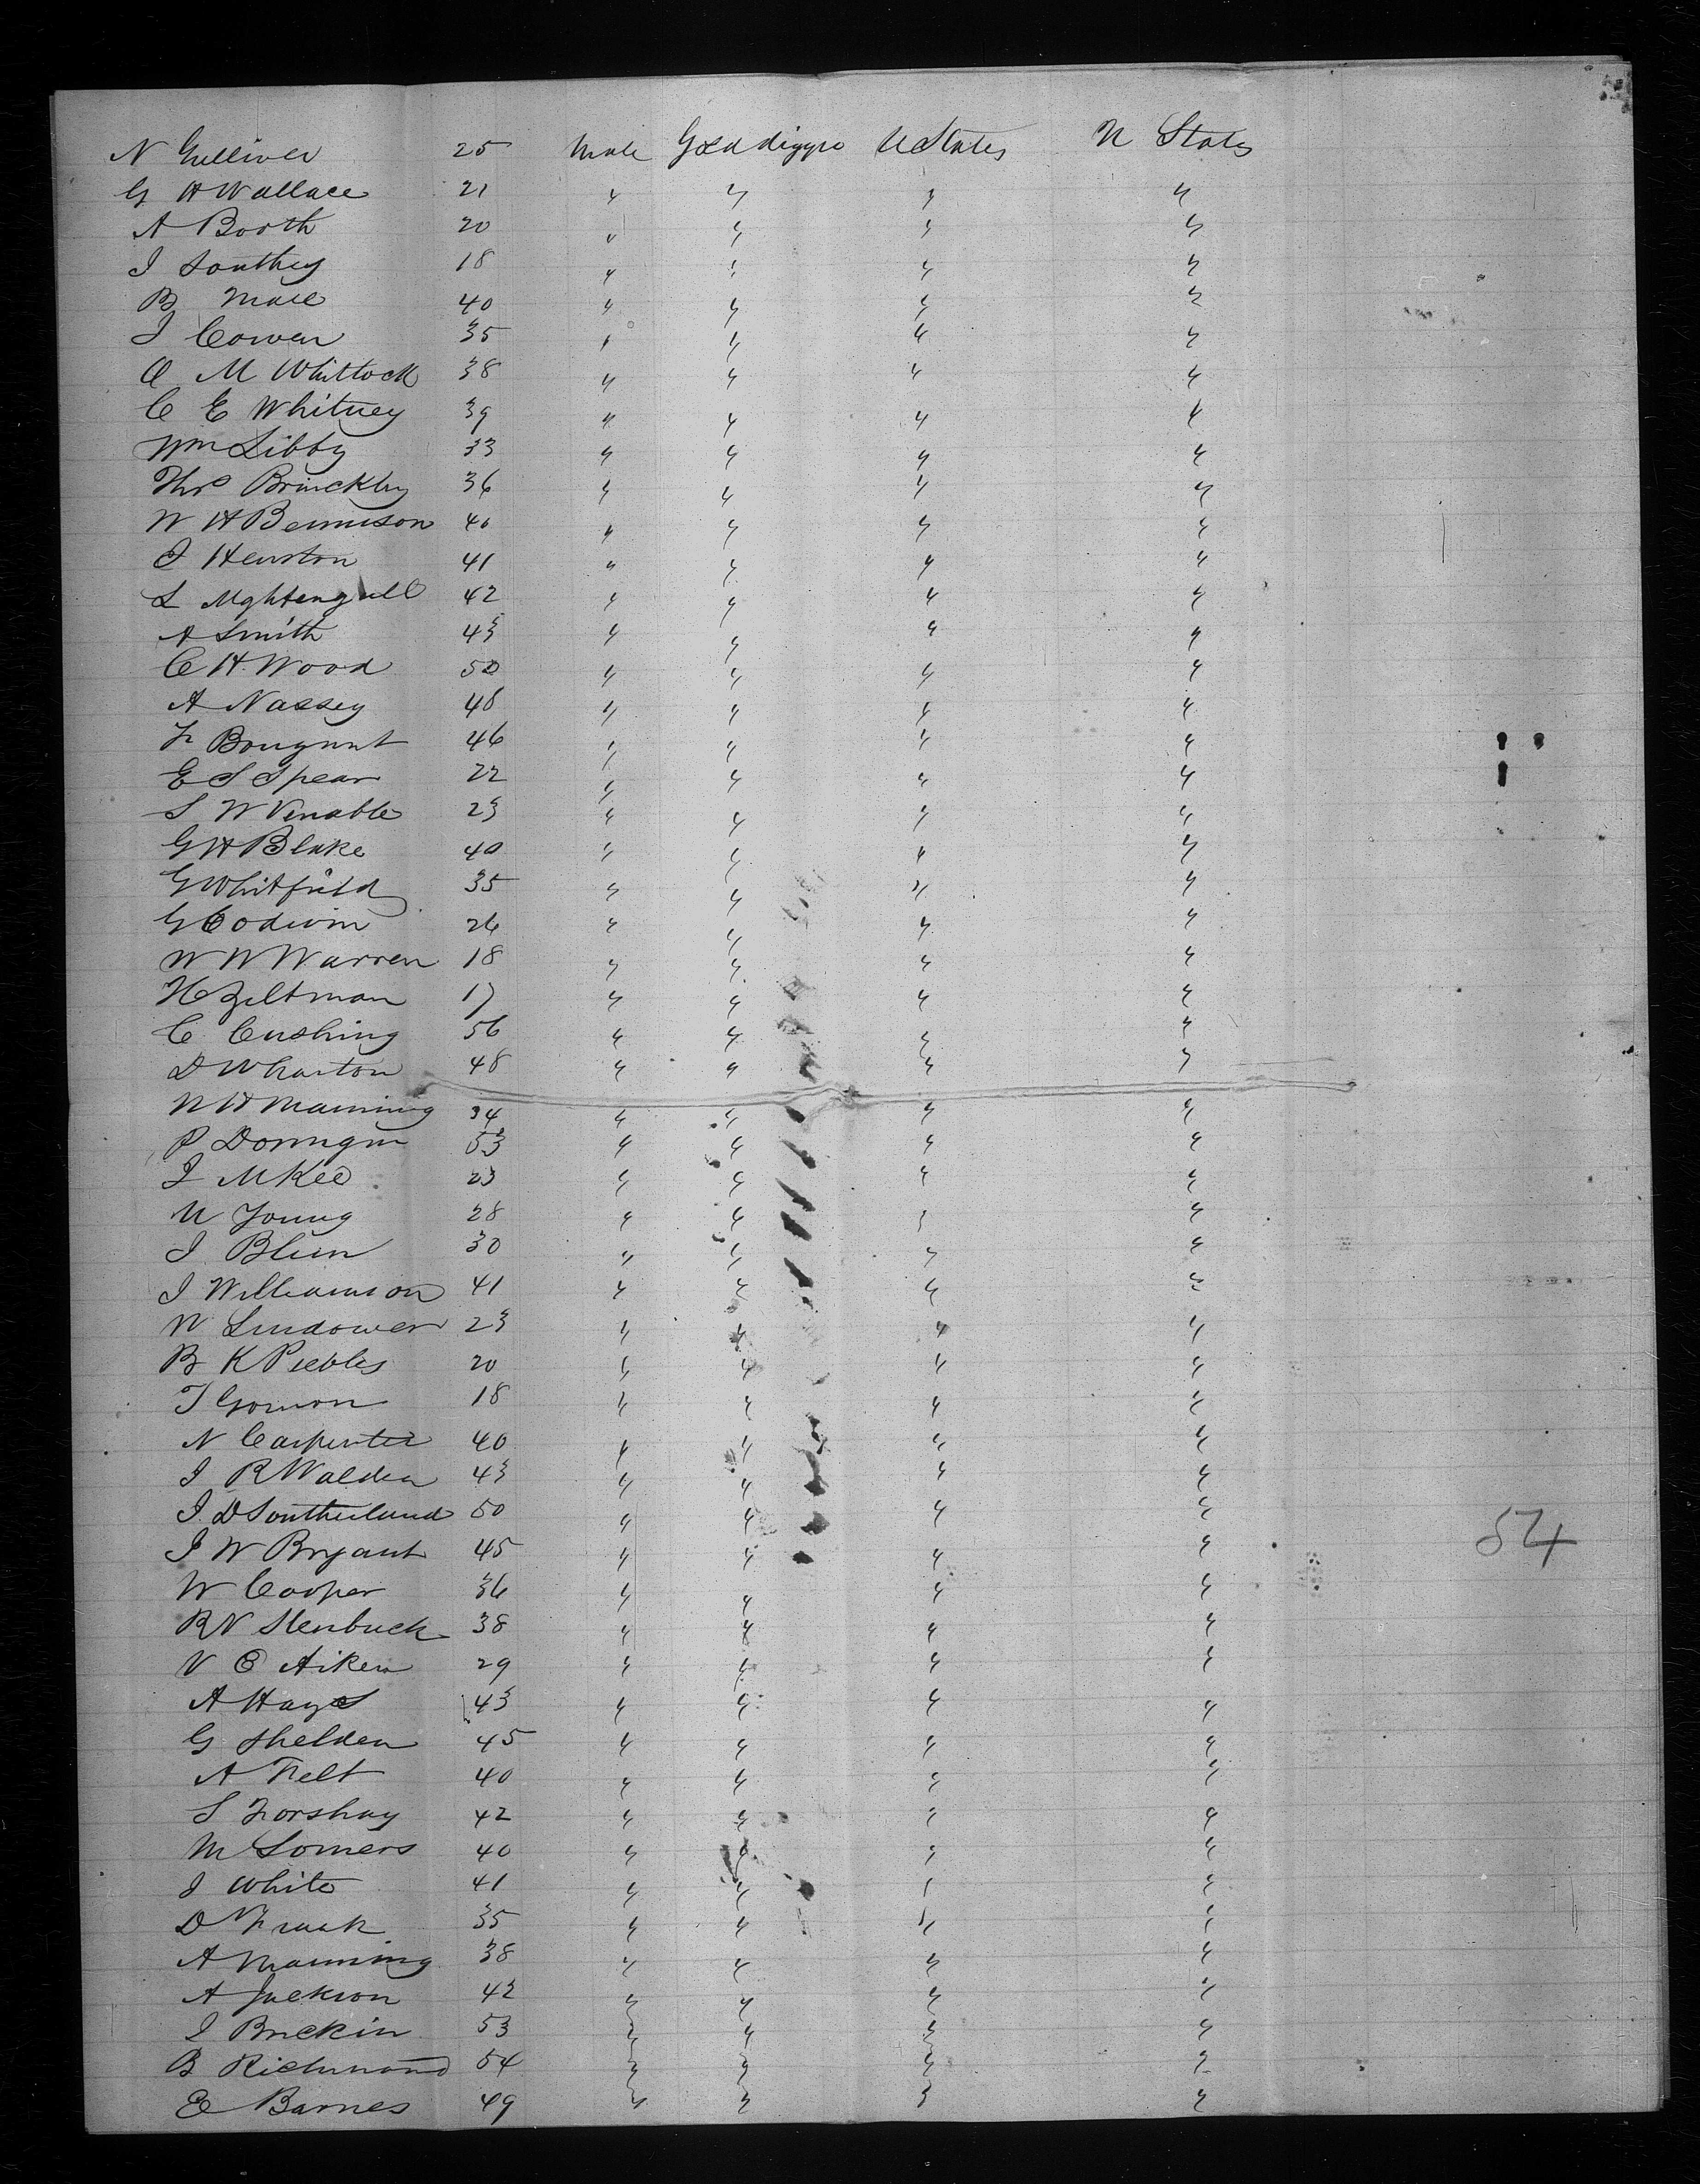 N Gulliver 25 Male Gold digger U States U States
G H Wallace 21 " " " "
A Booth 20 " " " "
J Southey 18 " " " "
B Mace 40 " " " "
J Cowen 35 " " " "
O M Whittock 38 " " " "
C E Whitney 39 " " " "
Wm Libby 33 " " " "
Thos Brinckley 36 " " " "
W H Bennison 40 " " " "
J Heuston 41 " " " "
L Nightengall 42 " " " "
A Smith 43 " " " "
C H Wood 50 " " " "
A Nassey 48 " " " "
46 " " " "
E S Spear 22 " " " "
S W Venable 23 " " " "
G H Blake 40 " " " "
G Whitfield 35 " " " "
G Codwin 26 " " " "
W W Warren 18 " " " "
H Zeltman 17 " " " "
C Cushing 56 " " " "
D Wharton 48 " " " "
N H Manning 34 " " " "
P Donnigan 53 " " " "
J McKee 23 " " " "
U Young 28 " " " "
J Blun 30 " " " "
J Williamson 41 " " " "
W Lindower 23 " " " "
B K Peebles 20 " " " "
T Gorman 18 " " " "
N Carpenter 40 " " " "
J R Walden 43 " " " "
J D Southerland 50 " " " "
J W Bryant 45 " " " "
W Cooper 36 " " " "
R N Stenbuck 38 " " " "
V C Aiken 29 " " " "
A Hays 43 " " " "
G Shelden 45 " " " "
A Felt 40 " " " "
S Forshay 42 " " " "
M Somers 40 " " " "
J White 41 " " " "
D 35 " " " "
A Manning 38 " " " "
A Jackson 42 " " " "
J Buckin 53 " " " "
B Richmond 54 " " " "
E Barnes 49 " " " "
54